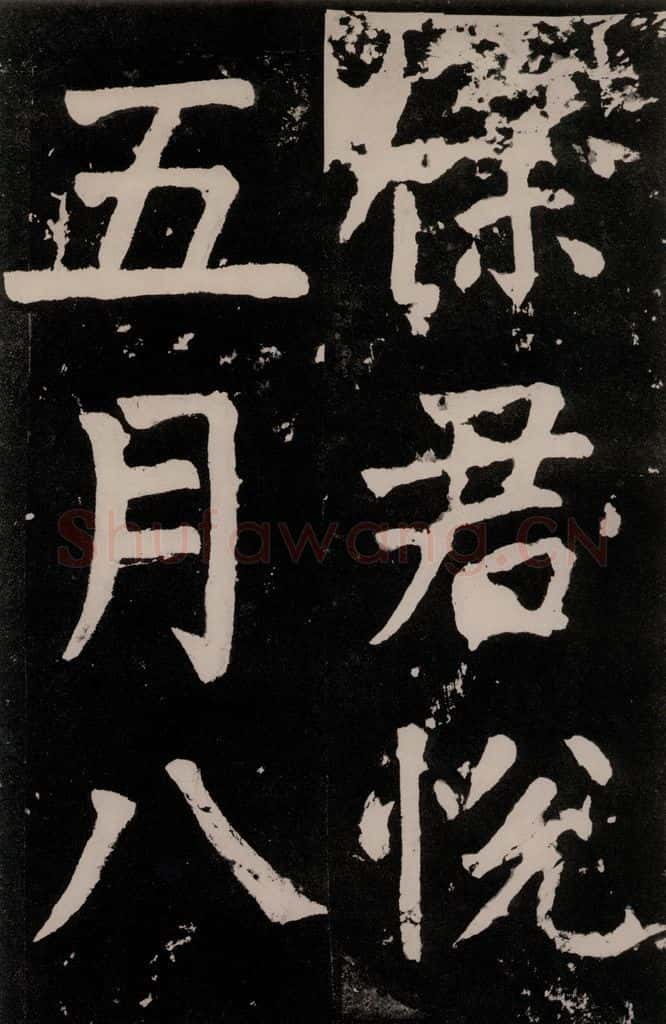 君悦
五月八
Shufawang.CN